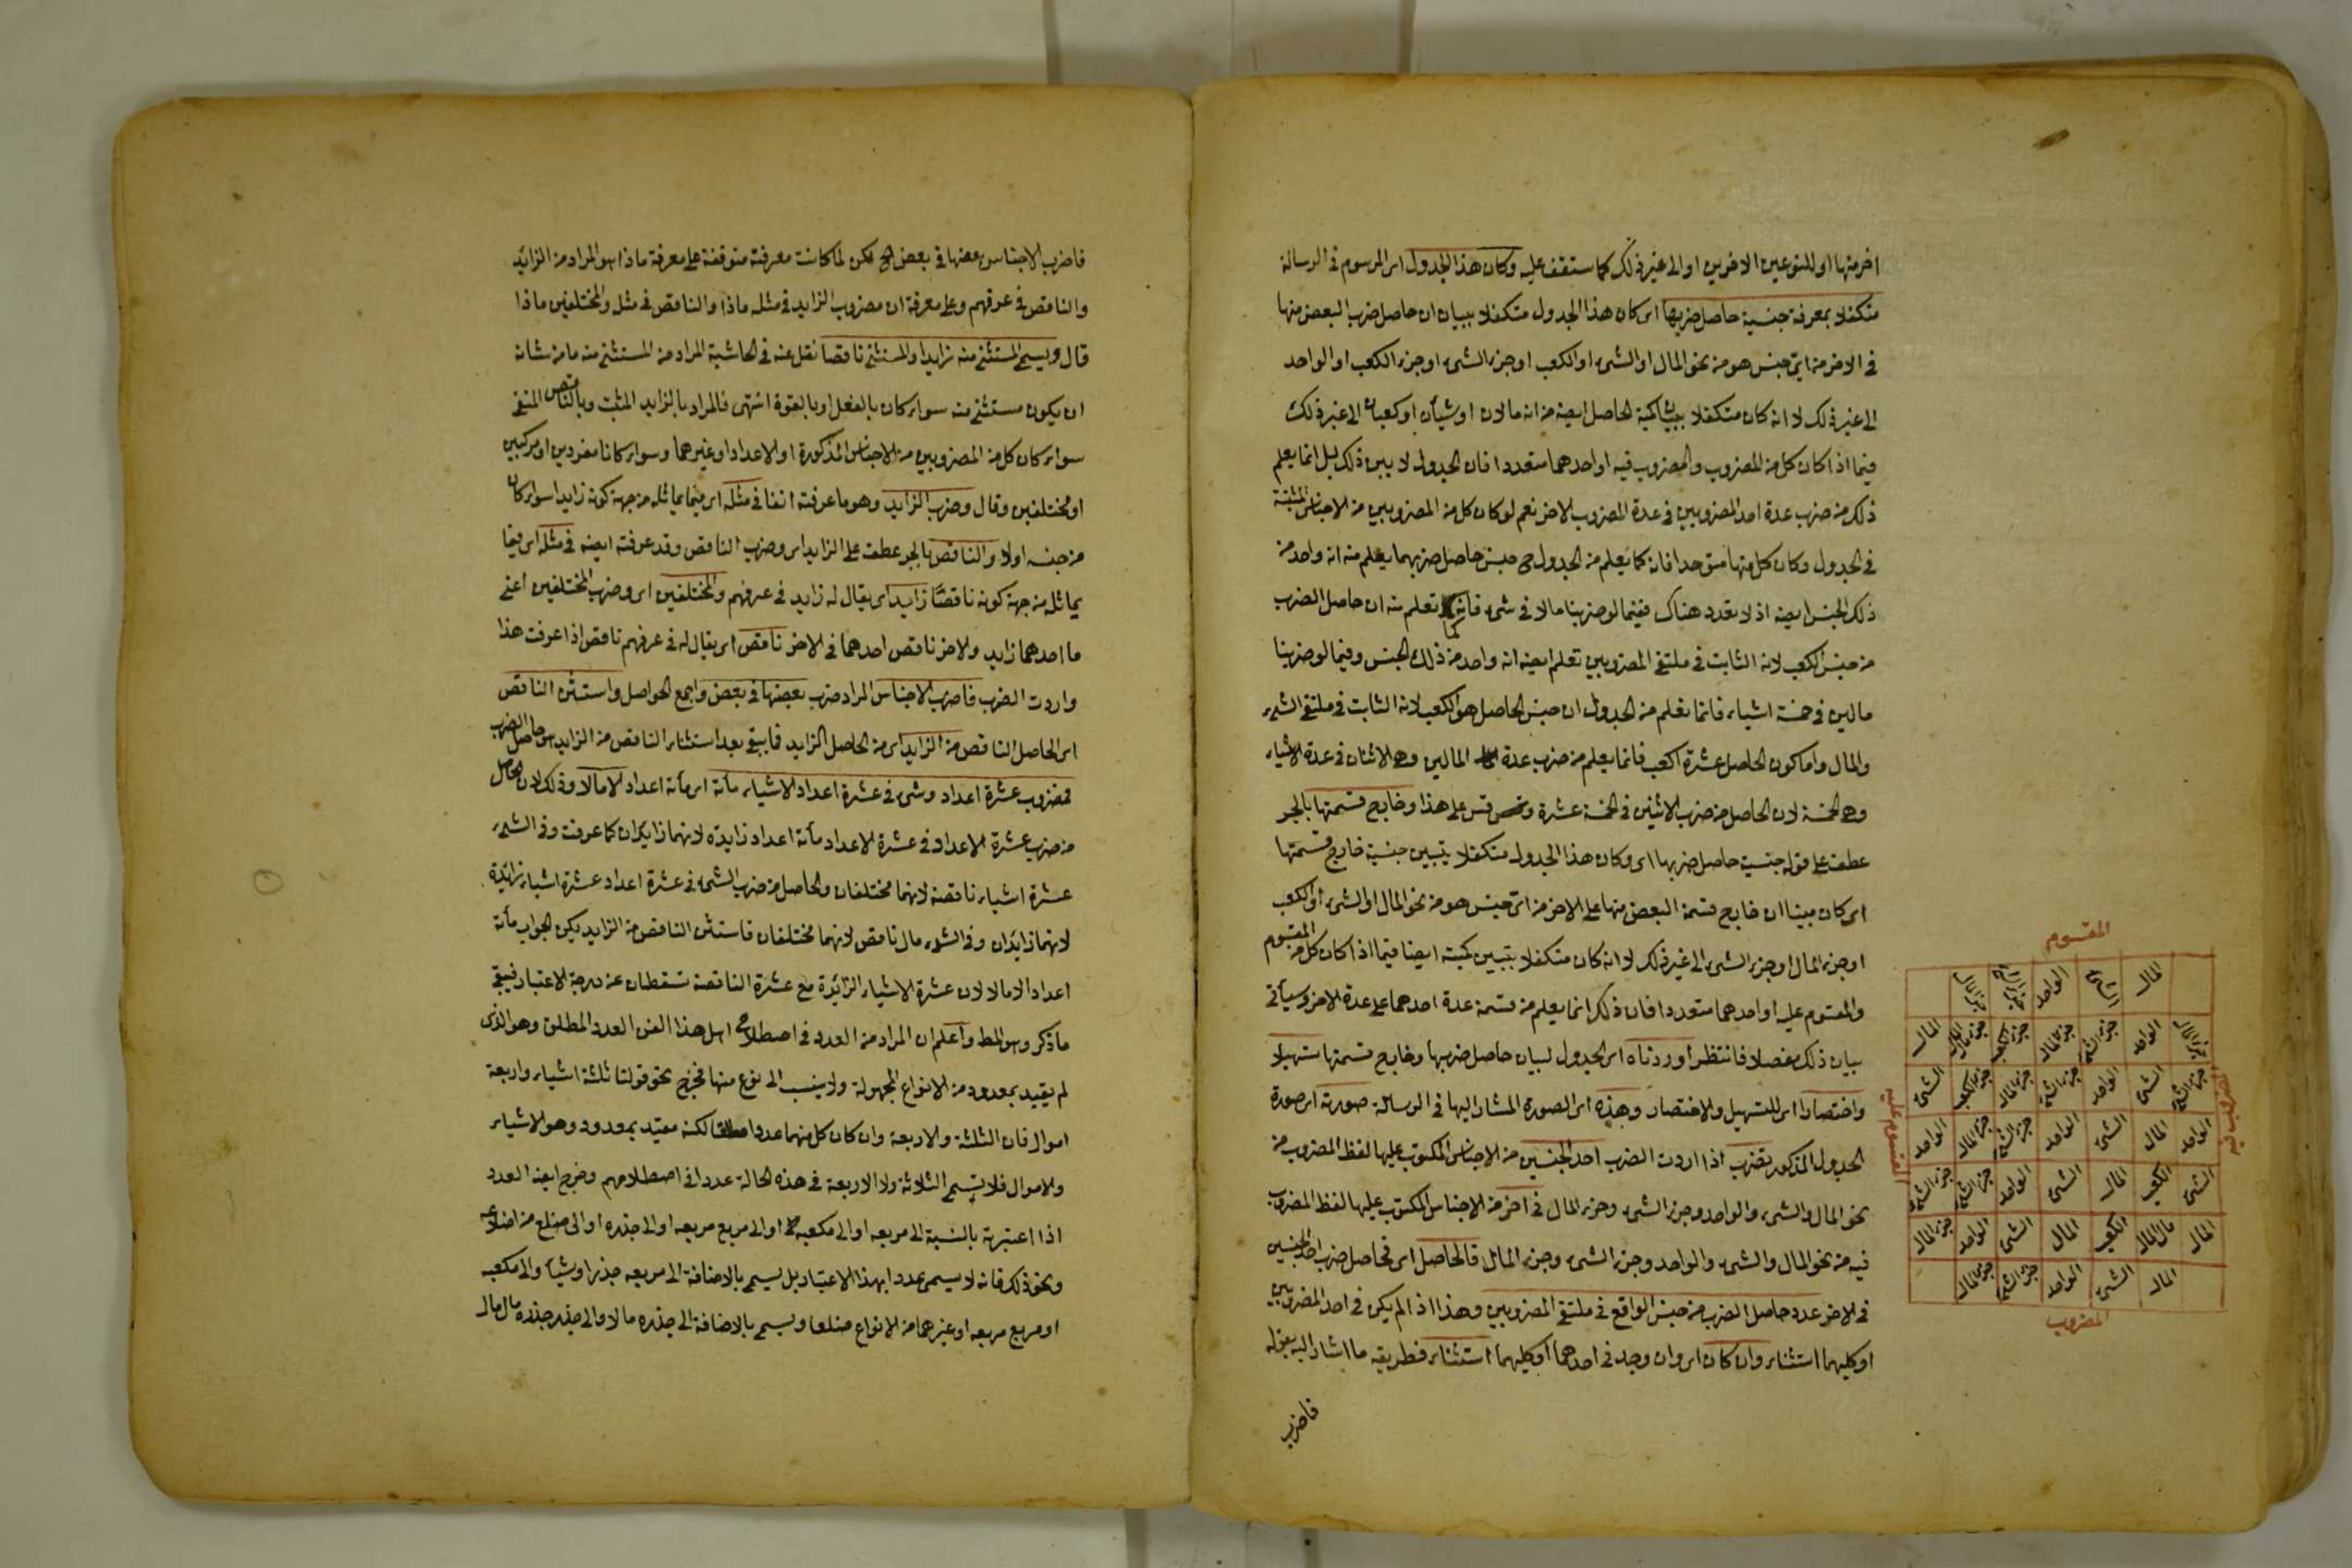 اخر منها او للنوعين الاخرين او الى غير ذلك كما ستقف عليه وكان هذا الجدول اى المرسوم فى الرسالة
متكفلا بمعرفة جنسية حاصل ضربها اى كان هذا الجدول متكفلا ببيان ان حاصل ضرب البعض منها
فى الاخر من اىّ جنس هو من نحو المال او الشىء او الكعب او جزء الشىء او جزء الكعب او الواحد
الى غير ذلك لا انه كان متكفلا ببيان كمية الحاصل ايضه من انه مالان او شيآن او كعبان الى غير ذلك
فيما اذا كان كل من المضروب والمضروب فيه او احدهما متعددا فان الجدول لا يبين ذلك بل انما يعلم
ذلك من ضرب عدة احد المضروبين فى عدة المضروب الاخر نعم لو كان كل من المضروبين من الاجناس المثبتة
فى الجدول وكان كل منها متوحدا فانه كما يعلم من الجدول ح جنس حاصل ضربهما يعلم منه انه واحد من
ذلك الجنس ايضه اذ لا تعدد هناك ففيما لو ضربنا مالا فى شىء فانك كما تعلم منه ان حاصل الضرب
من جنس الكعب لانه الثابت فى ملتقى المضروبين تعلم ايضه انه واحد من ذلك الجنس وفيما لو ضربنا
مالين فى خمسة اشياء فانما تعلم من الجدول ان جنس الحاصل هو الكعب لانه الثابت فى ملتقى الشىء
والمال واما كون الحاصل عشرة اكعب فانما يعلم من ضرب عدة المالين وهى الاثنان فى عدة الاشياء
وهى الخمسة لان الحاصل من ضرب الاثنين فى الخمسة عشرة وقس على هذا وخارج قسمتها بالجر
عطف على قوله جنسية حاصل ضربها اى وكان هذا الجدول متكفلا بتبيين جنسية خارج قسمتها
اى كان مبينا ان خارج قسمة البعض منها على الاخر من اىّ جنس هو من نحو المال او الشىء او الكعب
او جزء المال او جزء الشىء الى غير ذلك لا انه كان متكفلا بتبيين كميته ايضا فيما اذا كان كل من المقسوم
والمقسوم عليه او احدهما متعددا فان ذلك انما يعلم من قسمة عدة احدهما على عدة الاخر وسيأتى
بيان ذلك مفصلا فانتظر اوردناه اى الجدول لبيان حاصل ضربها وخارج قسمتها تسهيلا
واختصارا اى للتسهيل والاختصار وهذه اى الصورة المشار اليها فى الرسالة صورته اى صورة
الجدول المذكور بضرب اذا اردت الضرب احد الجنسين من الاجناس المكتوب عليها لفظ المضروب من
نحو المال والشىء والواحد وجزء الشىء وجزء المال فى اخر من الاجناس المكتوب عليها لفظ المضروب
فيه من نحو المال والشىء والواحد وجزء الشىء وجزء المال فالحاصل اى فحاصل ضرب احد الجنسين
فى الاخر عدد حاصل الضرب من جنس الواقع فى ملتقى المضروبين وهذا اذا لم يكن فى احد المضروبين
او كليهما استثناء وان كان اى وان وجد فى احدهما او كليهما استثناء فطريقه ما اشار اليه بقوله
فاضرب
المقسوم
المال الشىء الواحد جزء الشىء جزء المال
جزء المال الواحد جزء الشىء جزء المال جزء الكعب جزء مال المال المال
جزء الشىء الشىء الواحد جزء الشىء جزء المال جزء الكعب الشىء
الواحد المال الشىء الواحد جزء الشىء جزء المال الواحد
الشىء الكعب المال الشىء الواحد جزء الشىء جزء الشىء
المال مال المال الكعب المال الشىء الواحد جزء المال
المال الشىء الواحد جزء الشىء جزء المال
المضروب
المضروب فيه
المقسوم عليه
فاضرب الاجناس بعضها فى بعض الخ لكن لما كانت معرفته متوقفة على معرفة ماذا هو المراد من الزائد
والناقص فى عرفهم وعلى معرفة ان مضروب الزايد فى مثله ماذا والناقص فى مثله والمختلفين ماذا
قال ويسمى المستثنى منه زايدا والمستثنى ناقصا نقل عنه فى الحاشية المراد من المستثنى منه ما من شانه
ان يكون مستثنى منه سواء كان بالفعل او بالقوة انتهى فالمراد بالزايد المثبت وبالناقص المنفى
سواء كان كل من المضروبين من الاجناس المذكورة او الاعداد او غيرهما وسواء كانا مفردين او مركبين
او مختلفين وقال وضرب الزايد وهو ما عرفته انفا فى مثله اى فيما يماثله من جهة كونه زايدا سواء كان
من جنسه اولا والناقص بالجر عطف على الزايد اى وضرب الناقص وقد عرفته ايضه فى مثله اى فيما
يماثله من جهة كونه ناقصًا زايد اى يقال له زايد فى عرفهم والمختلفين اى وضرب المختلفين اعنى
ما احدهما زايد والاخر ناقص احدهما فى الاخر ناقص اى يقال له فى عرفهم ناقص اذا عرفت هذا
واردت الضرب فاضرب الاجناس المراد ضرب بعضها فى بعض واجمع الحواصل واستثن الناقص
اى الحاصل الناقص من الزايد اى من الحاصل الزايد فما يبقى بعد استثناء الناقص من الزايد هو حاصل الضرب
فمضروب عشرة اعداد وشىء فى عشرة اعداد الا شياء مأة اى مأة اعداد الا مالا وذلك لان الحاصل
من ضرب عشرة الاعداد فى عشرة الاعداد مأة اعداد زايدة لانهما زايدان كما عرفت وفى الشىء
عشرة اشياء ناقصة لانهما مختلفان والحاصل من ضرب الشىء فى عشرة اعداد عشرة اشياء زائدة
لانهما زايدان وفى الشىء مال ناقص لانهما مختلفان فاستثن الناقص من الزايد يكن الجواب مأة
اعداد الا مالا لان عشرة الاشياء الزائدة مع عشرة الناقصة تسقطان عن درجة الاعتبار فيبقى
ما ذكر وهو المط واعلم ان المراد من العدد فى اصطلاح اهل هذا الفن العدد المطلق وهو الذى
لم يقيد بمعدود من الانواع المجهولة ولا ينسب الى نوع منها فخرج نحو قولنا ثلثة اشياء واربعة
اموال فان الثلثة والاربعة وان كان كل منهما عددا مطلقا لكنه مقيد بمعدود وهو الاشياء
والاموال فلا تسمى الثلاثة ولا الاربعة فى هذه الحالة عددا فى اصطلاحهم وخرج ايضه العدد
اذا اعتبرته بالنسبة الى مربعه او الى مكعبه او الى مربع مربعه او الى جذره او الى ضلع من اضلاعه
ونحو ذلك فانه لا يسمى عددا بهذا الاعتبار بل يسمى بالاضافة الى مربعه جذرا وشيأ والى مكعبه
او مربع مربعه او غيرهما من الانواع ضلعا ويسمى بالاضافة الى جذره مالا والى جذر جذره مال مال